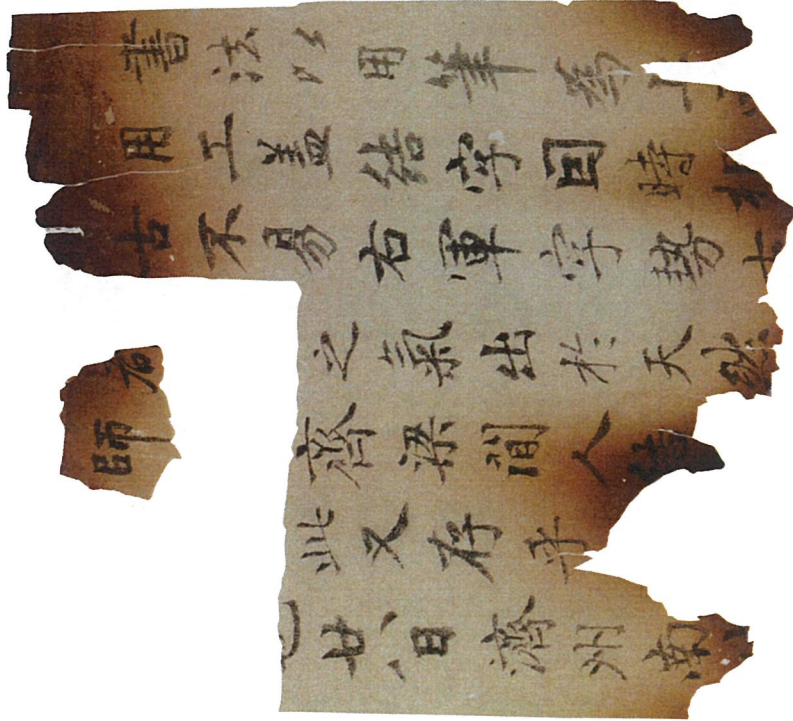 書法以用筆為上
用工蓋結字因時相
古不易右軍字勢古
之氣出於天然
師 齊梁間人結
此又存乎
廿八日濟州南